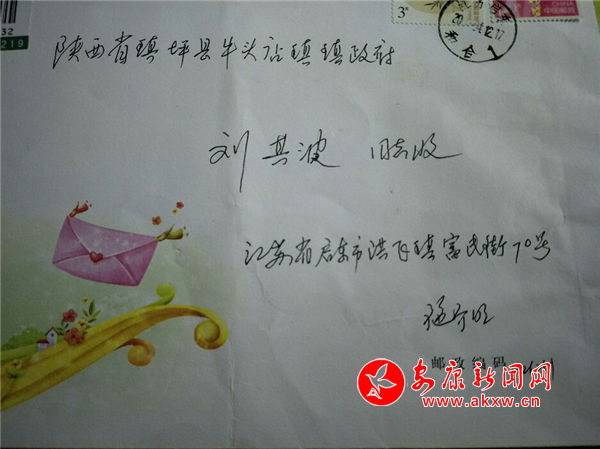 32
219
3
中国邮政
CHINA
陕西省镇坪县牛头店镇镇政府
刘其波 同志收
江苏省启东市洪 镇富民街70号
邮政编码
安康新闻网
www.akxw.cn